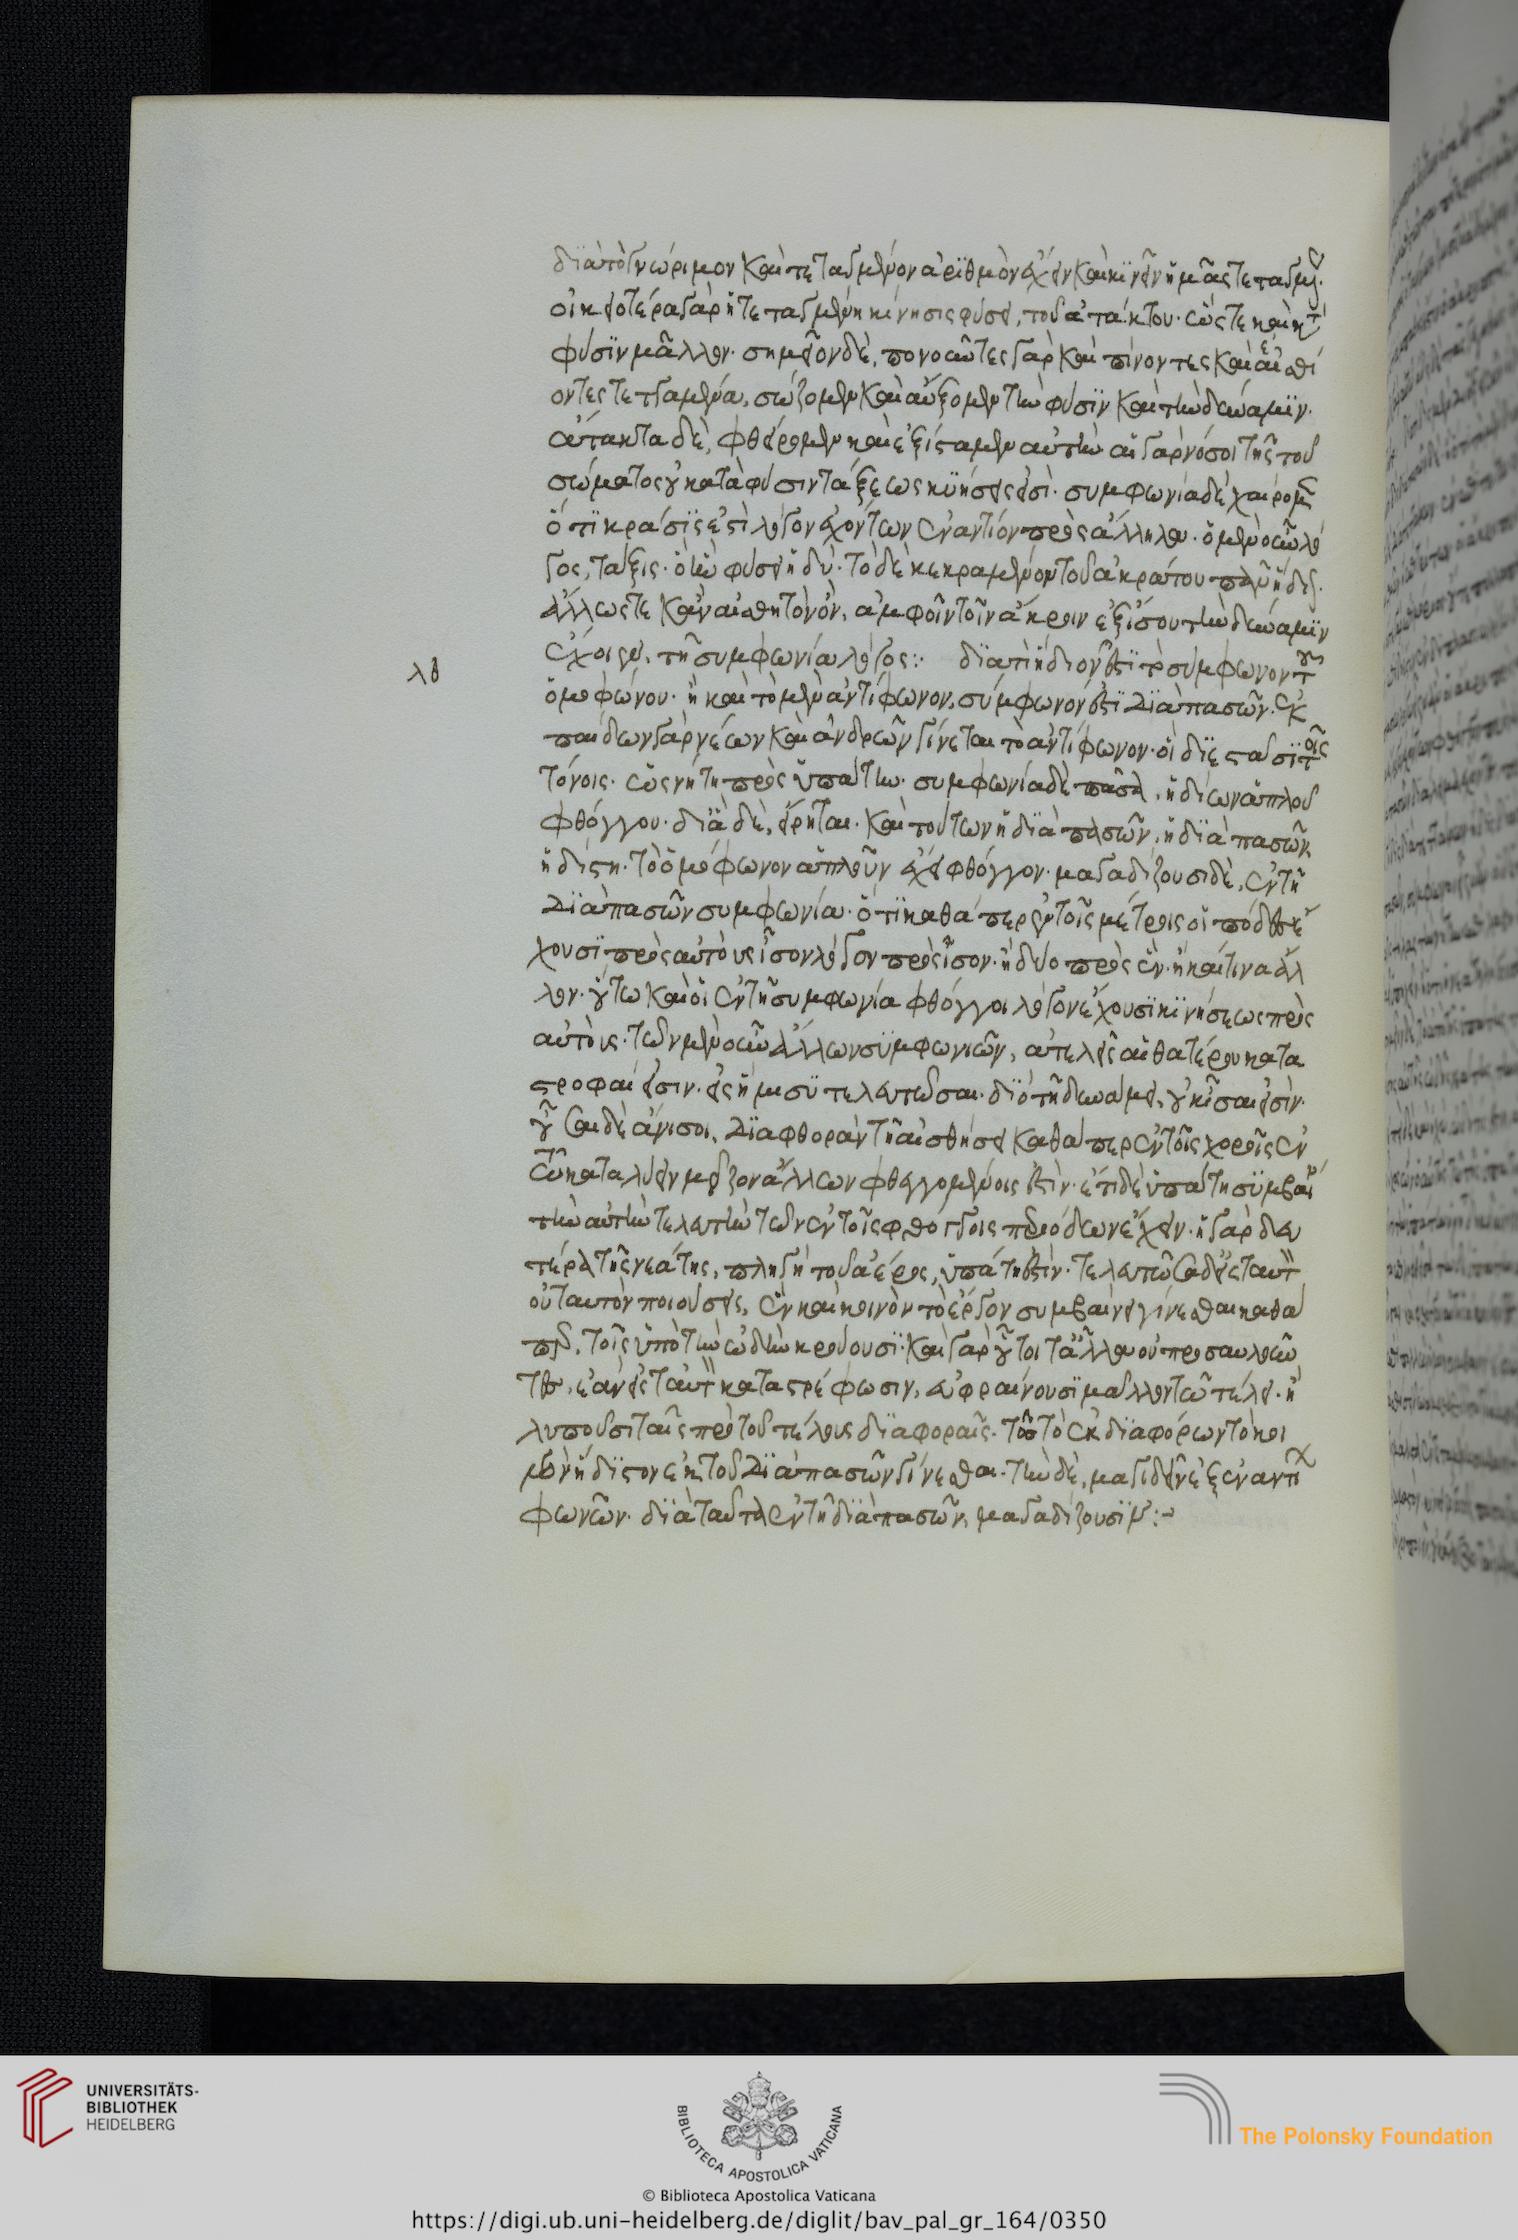 διὰ τὸ γνώριμον καὶ τεταγμένον ἀριθμὸν ἔχειν καὶ κινεῖν ἡμᾶς τεταγμένως·
οἰκειοτέρα γὰρ ἡ τεταγμένη κίνησις φύσει, τοῦ ἀτάκτου· ὥστε καὶ κατὰ
φύσιν μᾶλλον· σημεῖον δὲ, πονοῦντες γὰρ καὶ πίνοντες καὶ ἐσθί
οντες τεταγμένα, σώζομεν καὶ αὔξομεν τὴν φύσιν καὶ τὴν δύναμιν·
ἄτακτα δὲ, φθείρομεν καὶ ἐξίσταμεν αὐτὴν αἱ γὰρ νόσοι τῆς τοῦ
σώματος οὐ κατὰ φύσιν τάξεως κινήσεις εἰσί· συμφωνία δὲ χαίρομεν
ὅτι κρᾶσίς ἐστι λόγον ἐχόντων ἐναντίον πρὸς ἄλληλα· ὁ μὲν οὖν λό
γος, τάξις· ὁ ἦν φύσει ἡδύ· τὸ δὲ κεκραμένον τοῦ ἀκράτου πᾶν ἥδιον·
ἄλλως τε κἂν αἰσθητὸν ὂν, ἀμφοῖν τοῖν ἄκροιν ἐξίσου τὴν δύναμιν
ἔχοι ἐν τῇ συμφωνία λόγος: διατί ἥδιόν ἐστι τὸ σύμφωνον τοῦ
λθ
ὁμοφώνου· ἢ καὶ τὸ μὲν ἀντίφωνον, σύμφωνόν ἐστι διὰ πασῶν· ἐκ
παίδων γὰρ νέων καὶ ἀνδρῶν γίνεται τὸ ἀντίφωνον· οἳ διεστᾶσι τοῖς
τόνοις· ὡς νήτη πρὸς ὑπάτην· συμφωνία δὲ πᾶσα, ἡδίων ἁπλοῦ
φθόγγου· δι' ἃ δὲ, εἴρηται· καὶ τούτων ἡ διὰ πασῶν, ἡ διὰ πασῶν,
ἡδίστη· τὸ ὁμόφωνον ἁπλοῦν ἔχει φθόγγον· μαγαδίζουσι δὲ, ἐν τῇ
διὰ πασῶν συμφωνία· ὅτι καθάπερ ἐν τοῖς μέτροις οἱ πόδες ἔ
χουσι πρὸς αὑτοὺς ἴσον λόγον πρὸς ἴσον· ἢ δύο πρὸς ἕν· ἢ καί τινα ἄλ
λον· οὕτω καὶ οἱ ἐν τῇ συμφωνία φθόγγοι λόγον ἔχουσι κινήσεως πρὸς
αὑτούς· τῶν μὲν οὖν ἄλλων συμφωνιῶν, ἀτελεῖς αἱ θατέρου κατα
στροφαί εἰσιν· εἰς ἥμισυ τελευτῶσαι· διὸ τῇ δυνάμει, οὐκ ἴσαι εἰσίν·
οὖσαι δὲ ἄνισοι, διαφθορὰν τῇ αἰσθήσει καθάπερ ἐν τοῖς χοροῖς ἐν
τῷ καταλύειν μεῖζον ἄλλων φθεγγομένοις ἐστίν· ἔτι δὲ ὑπάτη συμβαί
τὴν αὐτὴν τελευτὴν τῶν ἐν τοῖς φθόγγοις περιόδων ἔχειν· ἡ γὰρ δευ
τέρα τῆς νεάτης, πληγὴ τοῦ ἀέρος, ὑπάτη ἐστίν· τελευτῶσαι δ' εἰς ταυτὸν
οὐ ταυτὸν ποιούσαις, ἓν καὶ κοινὸν τὸ ἔργον συμβαίνει γίνεσθαι καθά
περ, τοῖς ὑπὸ τὴν ᾠδὴν κρούουσι· καὶ γὰρ οὗτοι τὰ ἄλλα οὐ προσαυλοῦν
τες, ἐὰν εἰς ταυτὸν καταστρέφωσιν, εὐφραίνουσι μᾶλλον τῷ τέλει· ἢ
λυποῦσι ταῖς πρὸ τοῦ τέλους διαφοραῖς· τῷ τὸ ἐκ διαφόρων τὸ κοι
νὸν ἥδιστον ἐκ τοῦ διὰ πασῶν γίνεσθαι· τὴν δὲ, μαγιδεῖν ἐξ ἐναντίων
φωνῶν· διὰ ταῦτα ἐν τῇ διὰ πασῶν, μαγαδίζουσιν:
UNIVERSITÄTS-
BIBLIOTHEK
HEIDELBERG
BIBLIOTECA APOSTOLICA VATICANA
The Polonsky Foundation
© Biblioteca Apostolica Vaticana
https://digi.ub.uni-heidelberg.de/diglit/bav_pal_gr_164/0350